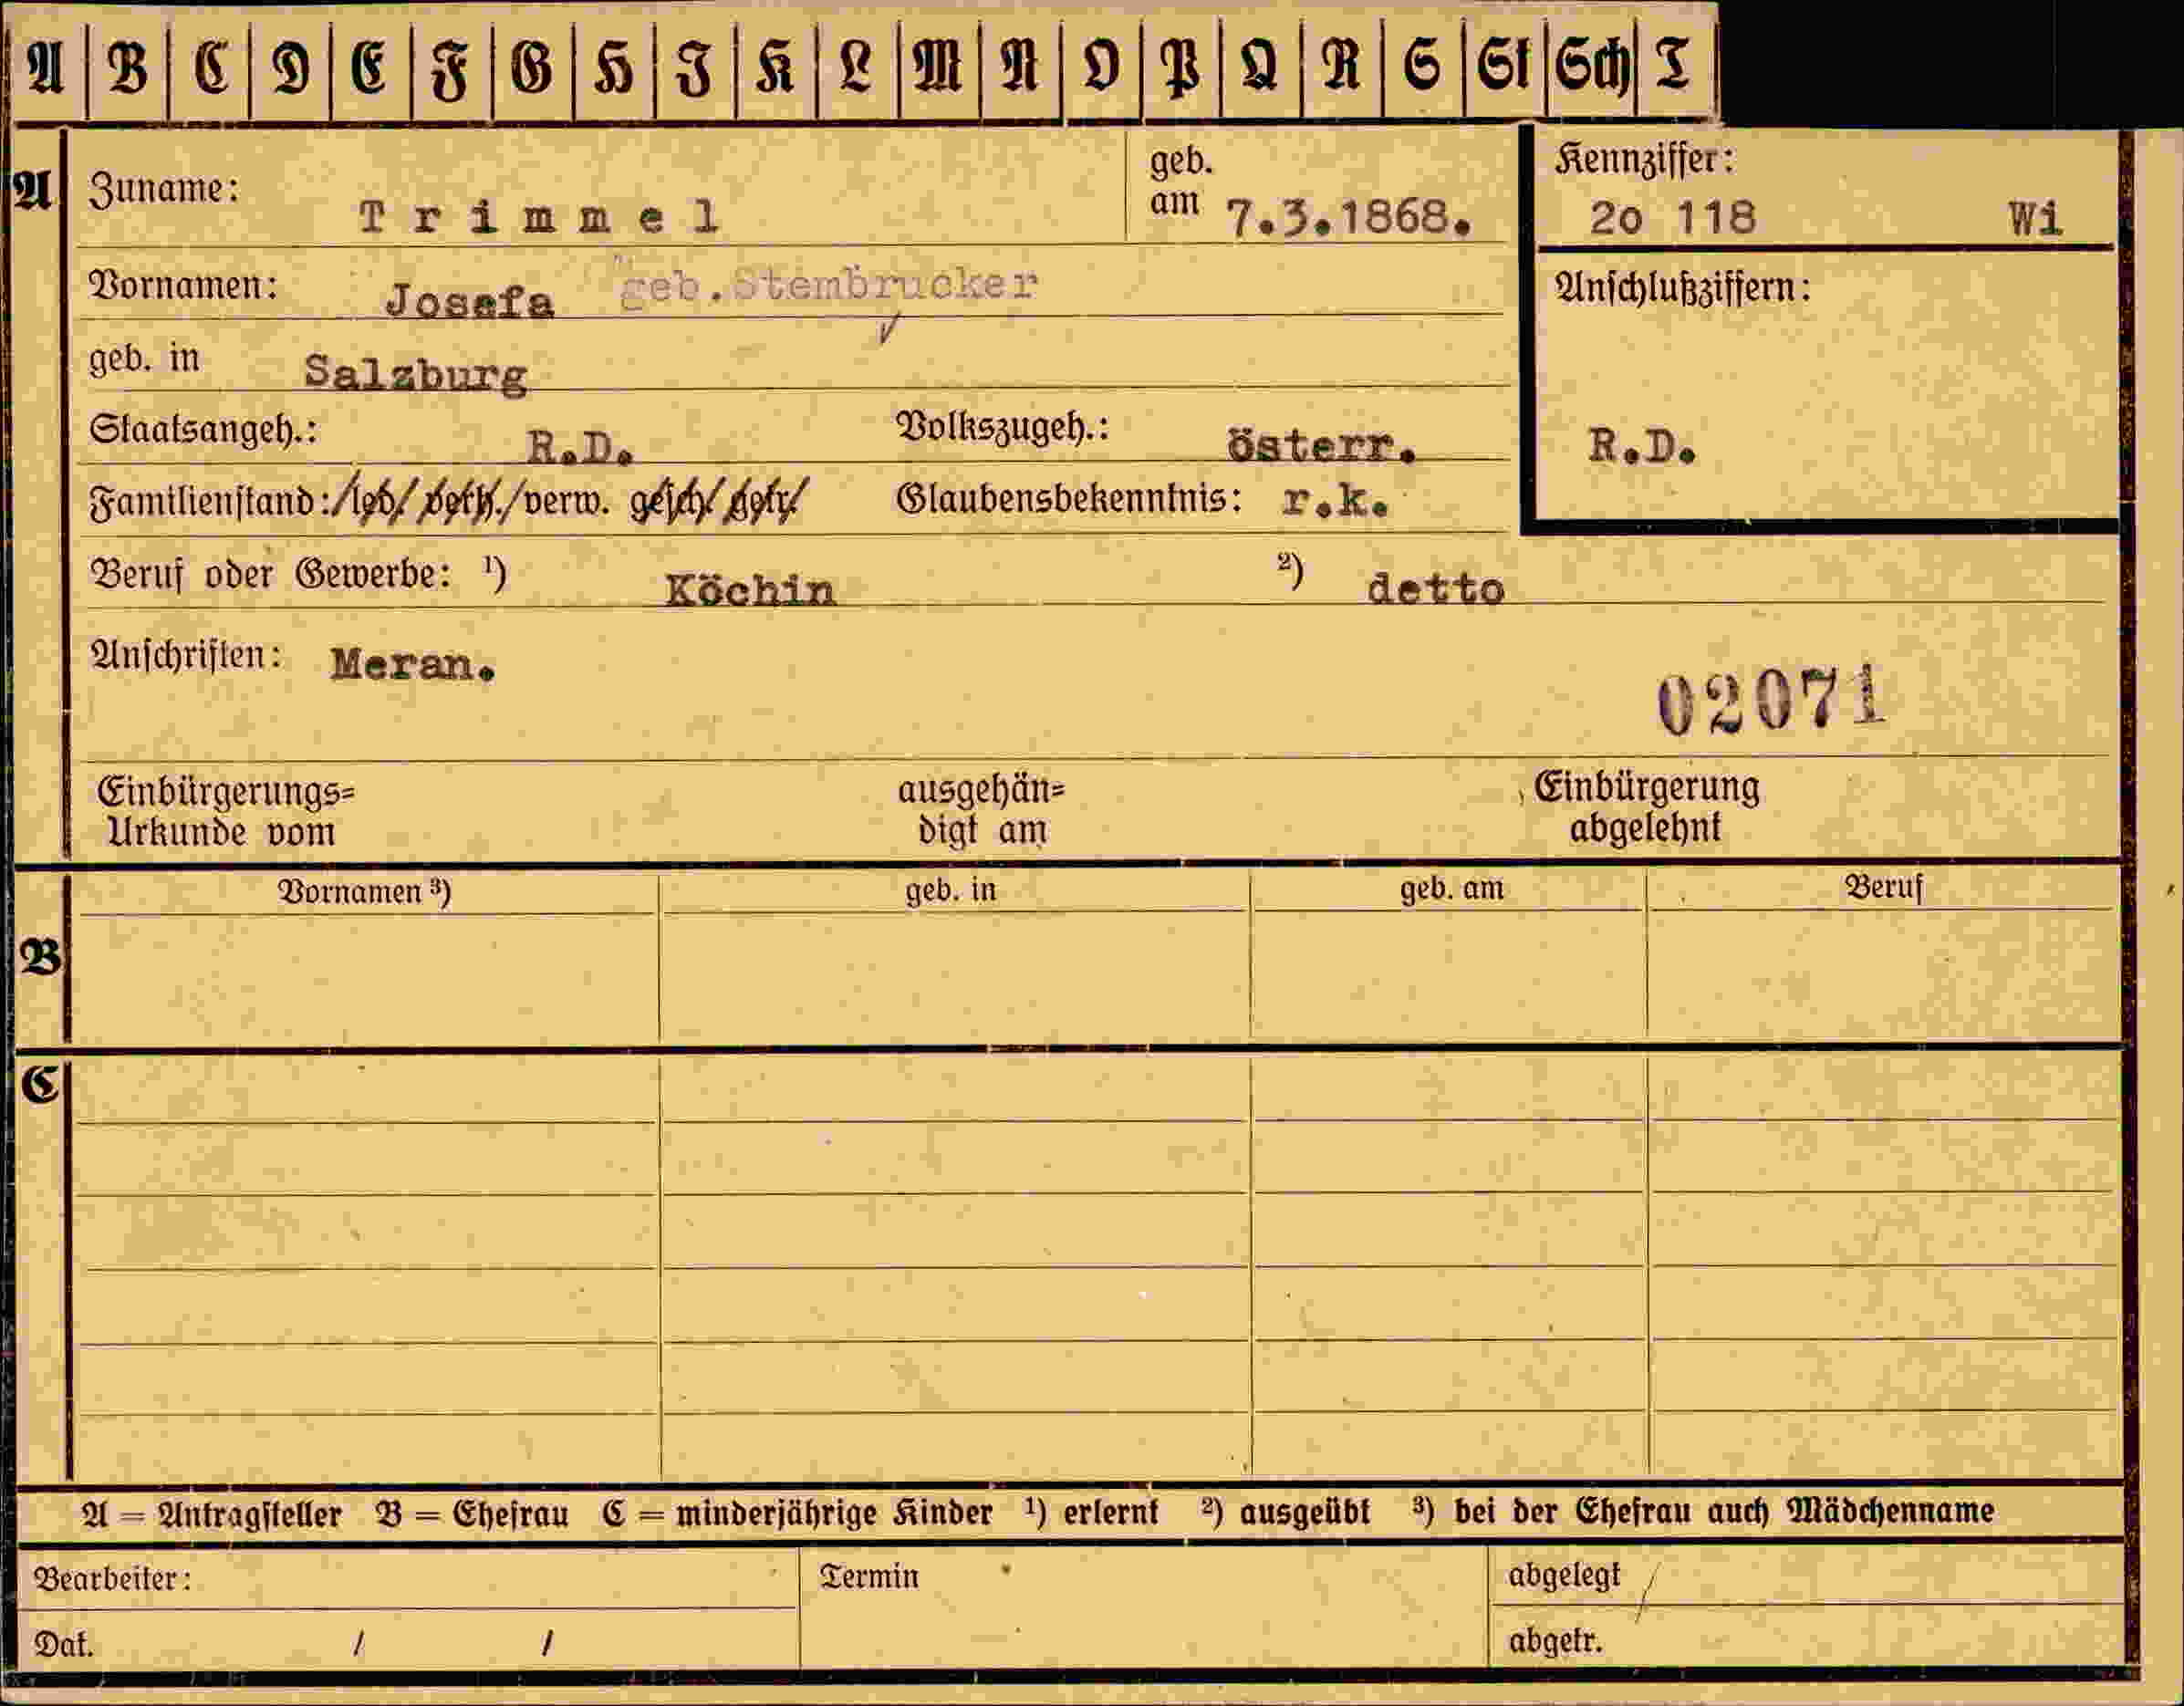 A B C D E F G H J K L M N O P Q R S St Sch T
A Zuname: Trimmel geb. am 7.3.1868. Kennziffer: 2o 118 Wi
Vornamen: Josefa geb.Stembrucker Anschlußziffern:
geb. in Salzburg
Staatsangeh.: R.D. Volkszugeh.: österr. R.D.
Familienstand: led. verh. verw. gesch. getr. Glaubensbekenntnis: r.k.
Beruf oder Gewerbe: ¹) Köchin ²) detto
Anschriften: Meran.
02071
Einbürgerungs= ausgehän= Einbürgerung
Urkunde vom digt am abgelehnt
Vornamen ³) geb. in geb. am Beruf
B
C
A = Antragsteller B = Ehefrau C = minderjährige Kinder ¹) erlernt ²) ausgeübt ³) bei der Ehefrau auch Mädchenname
Bearbeiter: Termin abgelegt
Dat. / / abgetr.